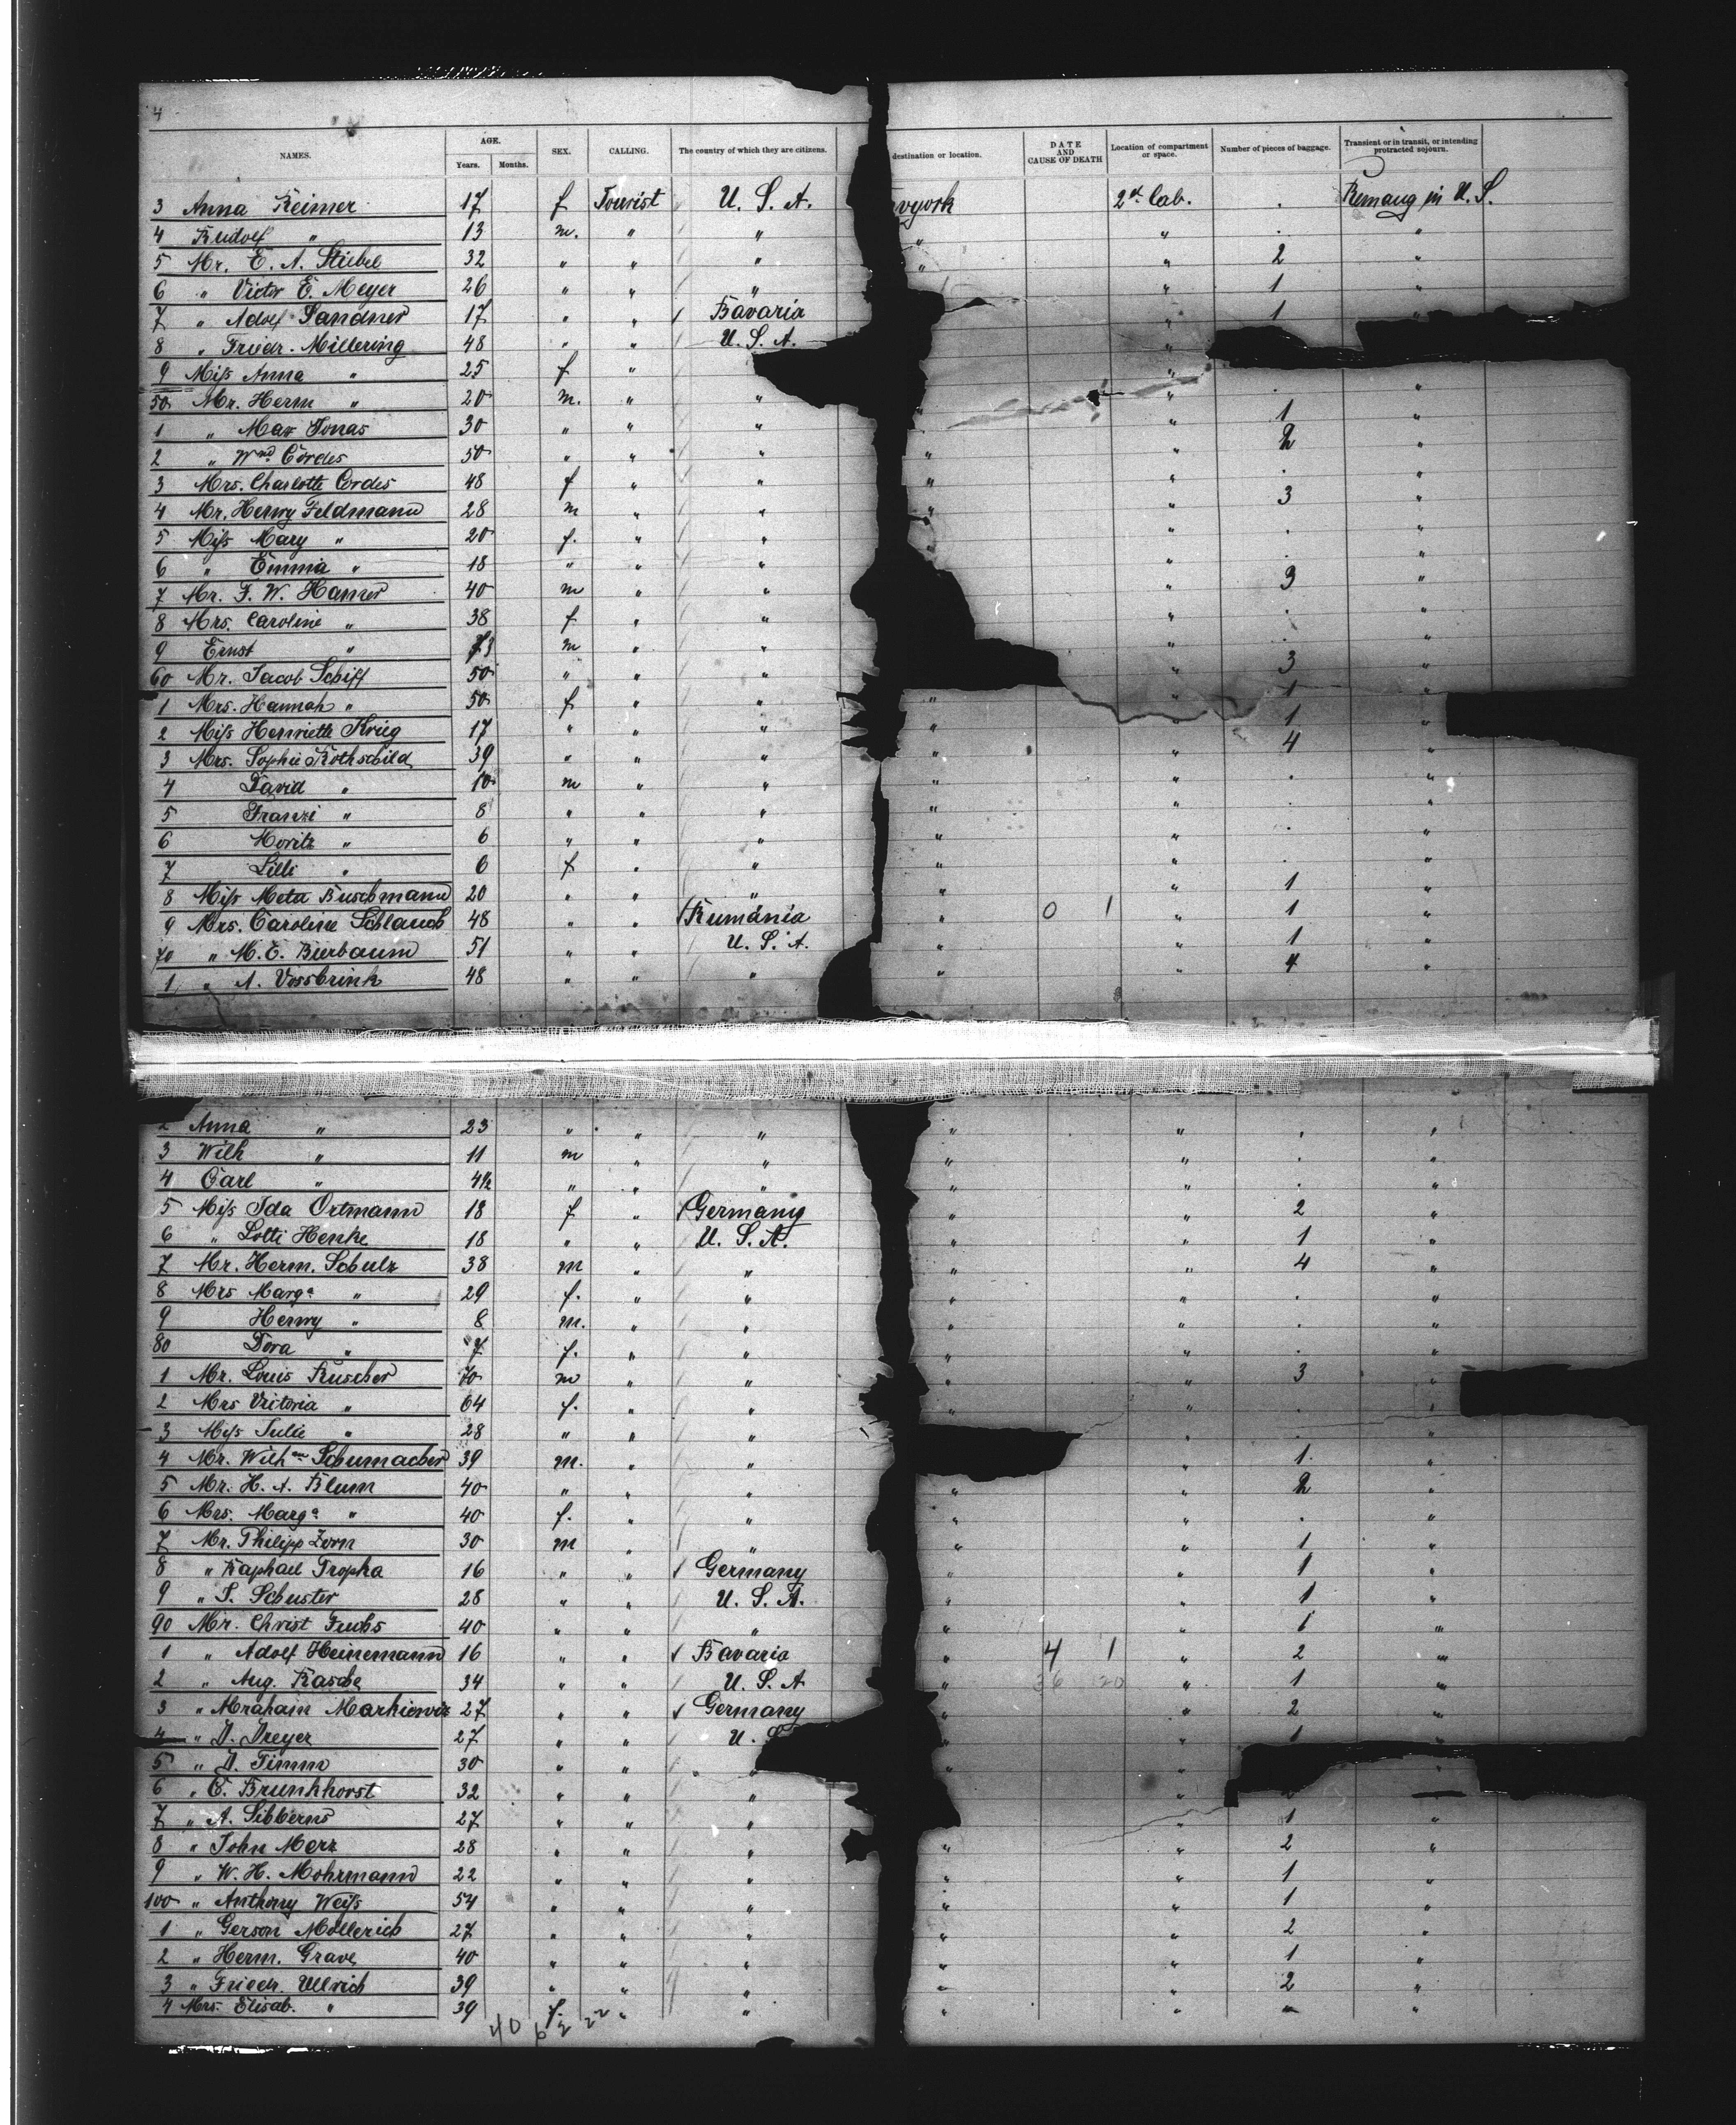 4
NAMES. AGE. Years. Months. SEX. CALLING. The country of which they are citizens. destination or location. DATE AND CAUSE OF DEATH Location of compartment or space. Number of pieces of baggage. Transient or in transit, or intending protracted sojourn.
3 Anna Reimer 17 f Tourist U. S. A. wyork 2d Cab. . in U. S.
4 Rudolf " 13 m. " " " " . "
5 Mr. E. A. Stiebel 32 " " " " " 2 "
6 " Victor E. Meyer 26 " " " " 1 "
7 " Adolf Sandner 17 " " Bavaria " 1 "
8 " Friedr. Millering 48 " " U. S. A. "
9 Miss Anna " 25 f " "
50 Mr. Herm " 20 m. " " " " . "
1 " Max Jonas 30 " " " " " 1 "
2 " Wm Cordes 50 " " " " " 2 "
3 Mrs. Charlotte Cordes 48 f " " " " . "
4 Mr. Henry Feldmann 28 m " " " " 3 "
5 Miss Mary " 20 f. " " " . "
6 " Emma " 18 " " " " . "
7 Mr. F. W. Hamer 40 m " " " 3 "
8 Mrs. Caroline " 38 f " " " . "
9 Ernst " m " " " . "
60 Mr. Jacob Schiff 50 " " " " 3 "
1 Mrs. Hannah " 50 f " " " 1
2 Miss Henriette Krieg 17 " " " " 1 "
3 Mrs. Sophie Rothschild 39 " " " " " 4 "
4 David " 10 m " " " " . "
5 Franzi " 8 " " " " " . "
6 Moritz " 6 " " " " " . "
7 Lilli " 6 f " " " " . "
8 Miss Meta Buschmann 20 " " " " " 1 "
9 Mrs. Caroline Schlauch 48 " " Rumänia " 0 1 " 1 "
70 " M. E. Bierbaum 51 " " U. S. A. " " 1 "
1 " A. Vossbrink 48 " " " " " 4 "
2 Anna " 23 " " " " " . "
3 Wilh " 11 m " " " " . "
4 Carl " 4½ " " " " " . "
5 Miss Ida Ortmann 18 f " Germany " " 2 "
6 " Lotti Henke 18 " " U. S. A. " " 1 "
7 Mr. Herm. Schulz 38 m " " " " 4 "
8 Mrs Marga " 29 f. " " " " . "
9 Henry " 8 m. " " " " . "
80 Dora " 7 f. " " " " . "
1 Mr. Louis Ruscher 70 m " " " " 3 "
2 Mrs Victoria " 64 f. " " " " . "
3 Miss Julie " 28 " " " . "
4 Mr. Wilhm Schumacher 39 m. " " " 1 "
5 Mr. H. A. Blum 40 " " " " " 2 "
6 Mrs. Marga " 40 f. " " " " . "
7 Mr. Philipp Zorn 30 m " " " " 1 "
8 " Raphael Tropka 16 " " Germany " " 1 "
9 " S. Schuster 28 " " U. S. A. " " 1 "
90 Mr. Christ Fuchs 40 " " " " " 1 "
1 " Adolf Heinemann 16 " " Bavaria " 4 1 " 2 "
2 " Aug. Rasche 34 " " U. S. A " 36 20 " 1 "
3 " Abraham Markiewicz 27 " " Germany " " 2 "
4 " D. Dreyer 27 " " U. S " " 1 "
5 " D. Timm 30 " " " " "
6 " C. Brunkhorst 32 " " " "
7 " A. Sibberns 27 " " " " 1 "
8 " John Merz 28 " " " " " 2 "
9 " W. H. Mohrmann 22 " " " " " 1 "
100 " Anthony Weiss 54 " " " " " 1 "
1 " Gerson Möllerich 27 " " " " " 2 "
2 " Herm. Grave 40 " " " " " 1 "
3 " Friedr. Ullrich 39 " " " " " 2 "
4 Mrs. Elisab. " 39 f. " " " " "
40 22